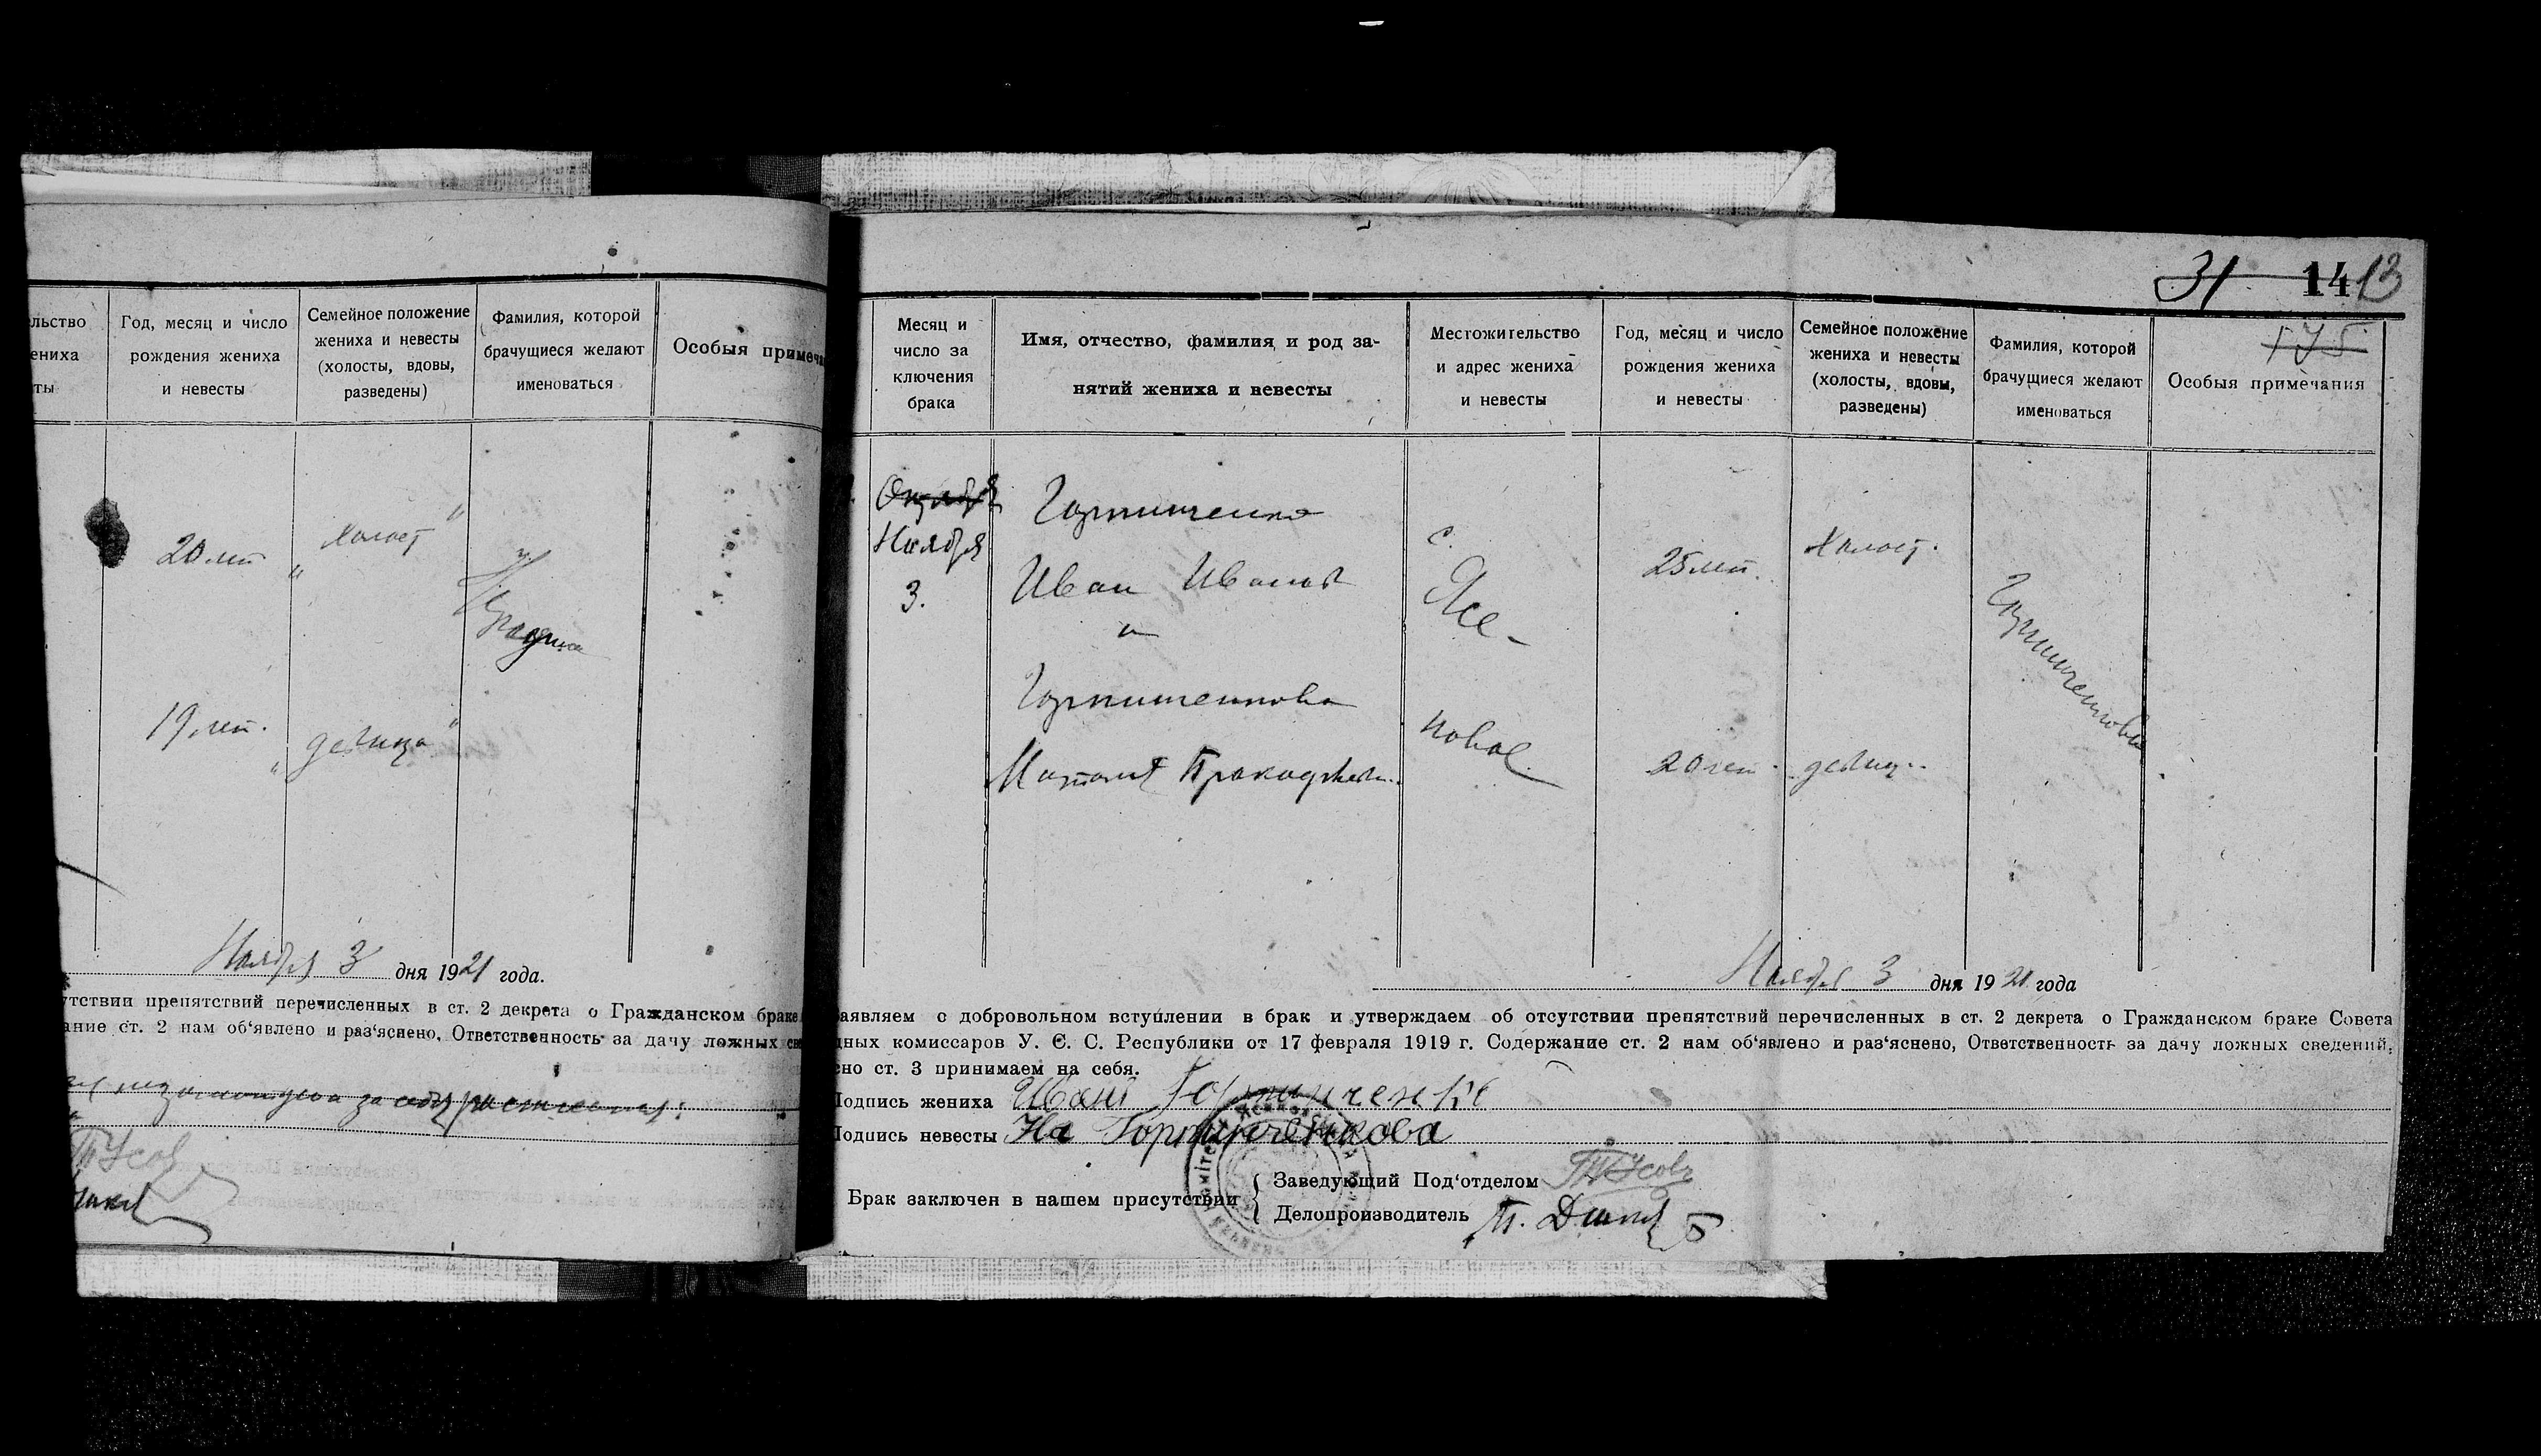 ельство
ениха
ты
Год, месяц и число
рождения жениха
и невесты
Семейное положение
жениха и невесты
(холосты, вдовы,
разведены)
Фамилия, которой
брачущиеся желают
именоваться
Особыя примеча
20 лет
холост
19 лет.
девица
Ноября 3 дня 1921 года.
утствии препятствий перечисленных в ст. 2 декрета о Гражданском браке
ание ст. 2 нам об‘явлено и раз‘яснено, Ответственность за дачу ложных све
31 14 13
175
Месяц и
число за
ключения
брака
Имя, отчество, фамилия и род за-
нятий жениха и невесты
Местожительство
и адрес жениха
и невесты
Год, месяц и число
рождения жениха
и невесты
Семейное положение
жениха и невесты
(холосты, вдовы,
разведены)
Фамилия, которой
брачущиеся желают
именоваться
Особыя примечания
Октября
Ноября
3.
Иван Иванов
и
с.
Ясе-
новое
25 лет.
Холост.
20 лет.
девиц.
Ноября 3 дня 1921 года
аявляем о добровольном вступлении в брак и утверждаем об отсутствии препятствий перечисленных в ст. 2 декрета о Гражданском браке Совета
дных комиссаров У. С. С. Республики от 17 февраля 1919 г. Содержание ст. 2 нам об‘явлено и раз‘яснено, Ответственность за дачу ложных сведений,
сно ст. 3 принимаем на себя.
Подпись жениха Иван
Подпись невесты На
Брак заключен в нашем присутствии
Заведующий Под‘отделом
Делопроизводитель